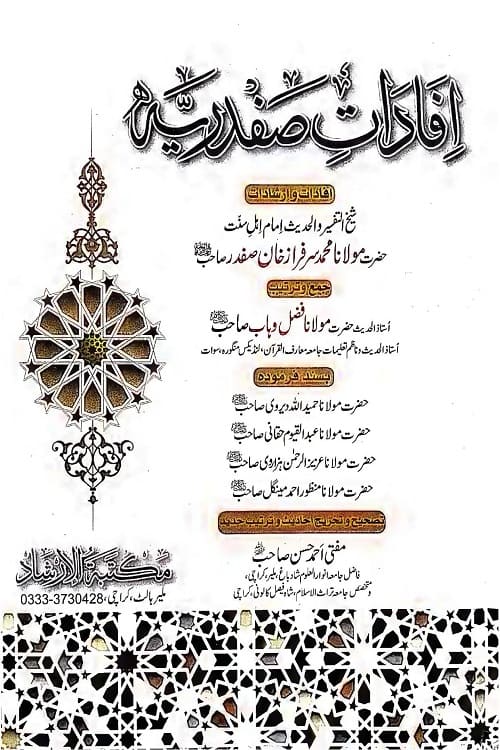 افاداتِ صفدریہ
افادات و ارشادات
شیخ التفسیر والحدیث امام اہل سنت
حضرت مولانا محمد سرفراز خان صفدر صاحب
جمع و ترتیب
استاذ الحدیث حضرت مولانا فضل وہاب صاحب
استاذ الحدیث و ناظم تعلیمات جامعہ معارف القرآن، لنڈیکس منگورہ، سوات
پسند فرمودہ
حضرت مولانا حمید اللہ دیروی صاحب
حضرت مولانا عبدالقیوم حقانی صاحب
حضرت مولانا عزیز الرحمٰن ہزاروی صاحب
حضرت مولانا منظور احمد مینگل صاحب
تصحیح و تخریج احادیث و ترتیب جدید
مفتی احمد حسن صاحب
فاضل جامعہ انوار العلوم شاد باغ، ملیر، کراچی،
و متخصص جامعہ تراث الاسلام، شاہ فیصل کالونی، کراچی
مکتبۃ الارشاد
ملیر ہالٹ، کراچی، 0333-3730428